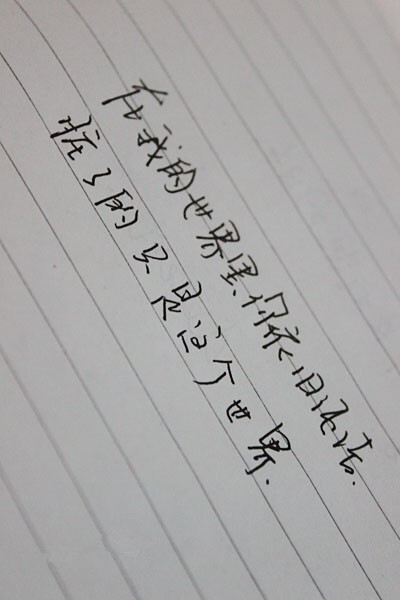 在我的世界里,你依旧洁.
脏了的只是这个世界.